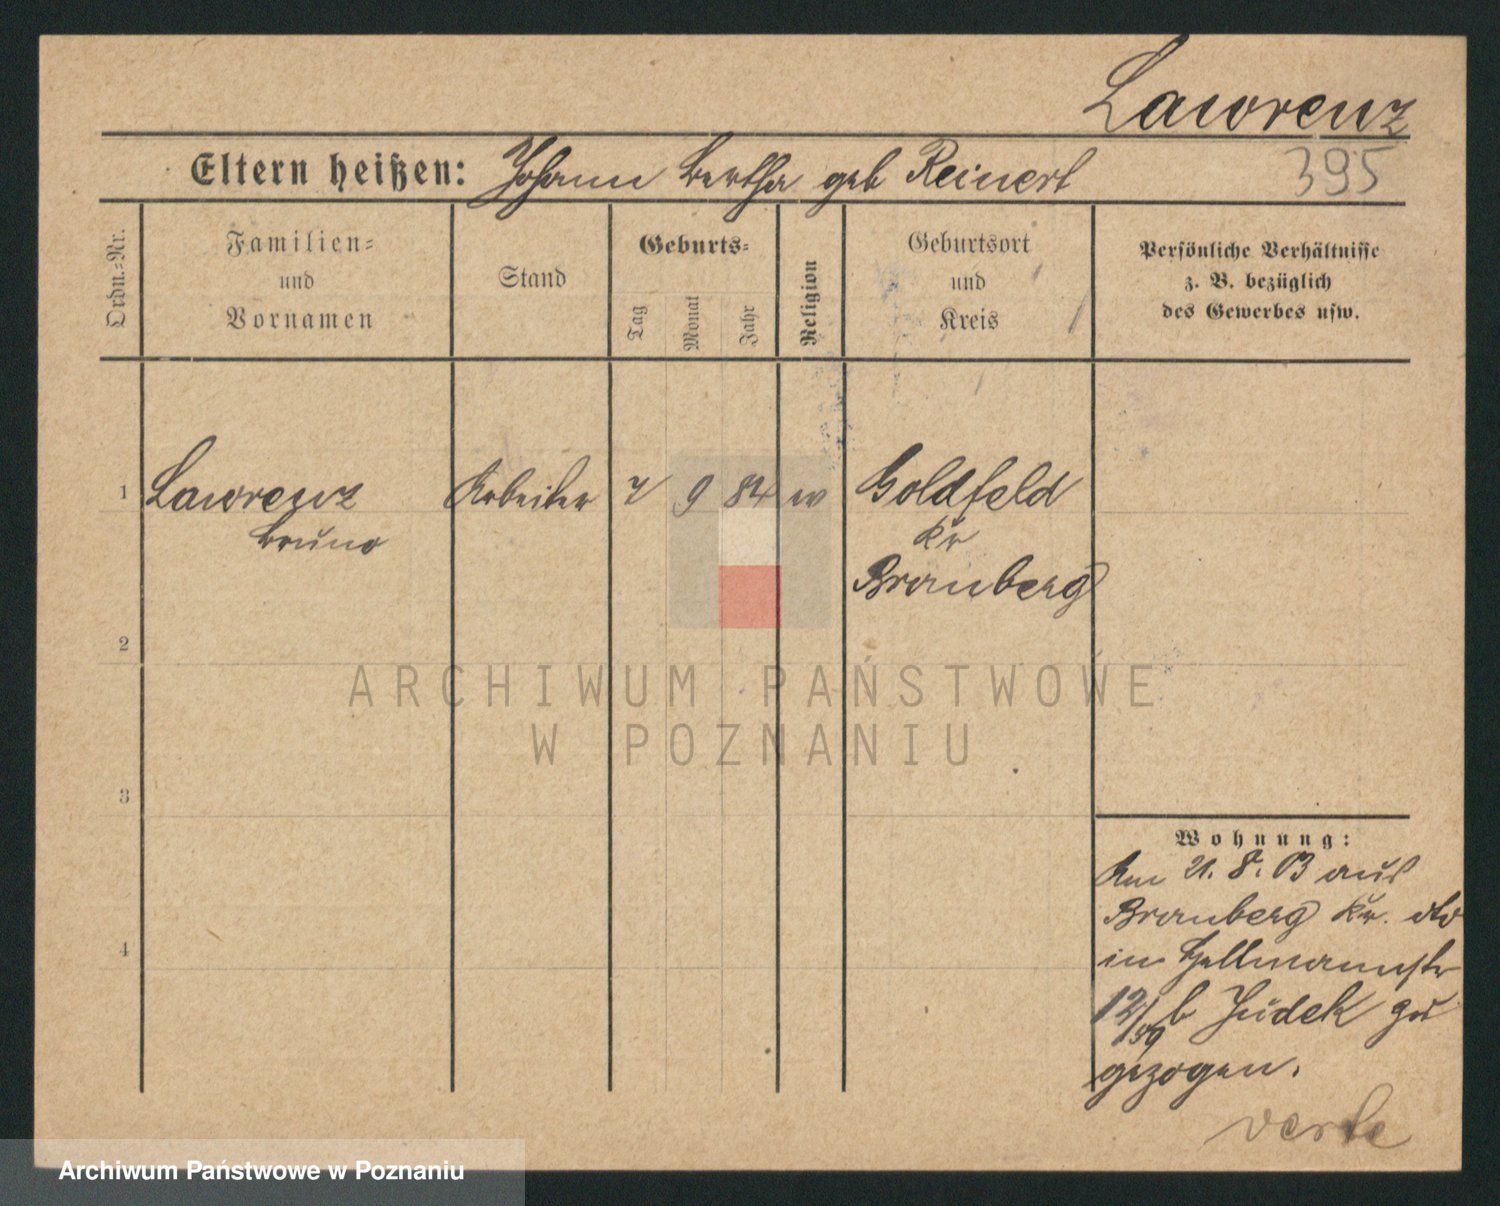 Lawrenz
Eltern heißen: Johann Bertha geb Reinert
395
Ordn.=Nr.
Familien=
und
Vornamen
Stand
Geburts=
Tag
Monat
Jahr
Religion
Geburtsort
und
Kreis
Persönliche Verhältnisse
z. B. bezüglich
des Gewerbes usw.
1 Lawrenz Arbeiter 7 9 84 ev Goldfeld
Bruno
Kr
Bromberg
2
3
4
Wohnung:
Am 21. 8. 03 aus
Bromberg Kr. dto
in
12/59 b Judek zu
gezogen.
verte
ARCHIWUM PAŃSTWOWE
W POZNANIU
Archiwum Państwowe w Poznaniu